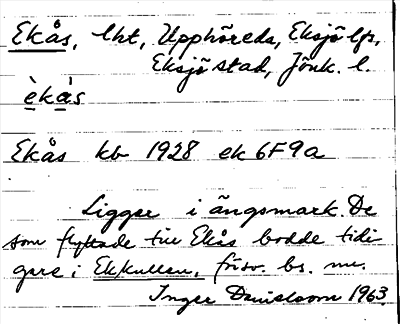 Ekås, lht, Upphöreda, Eksjö lfs,
Eksjö stad, Jönk. l.
èkås
Ekås kb 1928 ek 6F9a
Ligger i ängsmark. De
som flyttade till Ekås bodde tidi-
gare i Ekkullen, försv. bs. nr.
Inger Danielsson 1963.